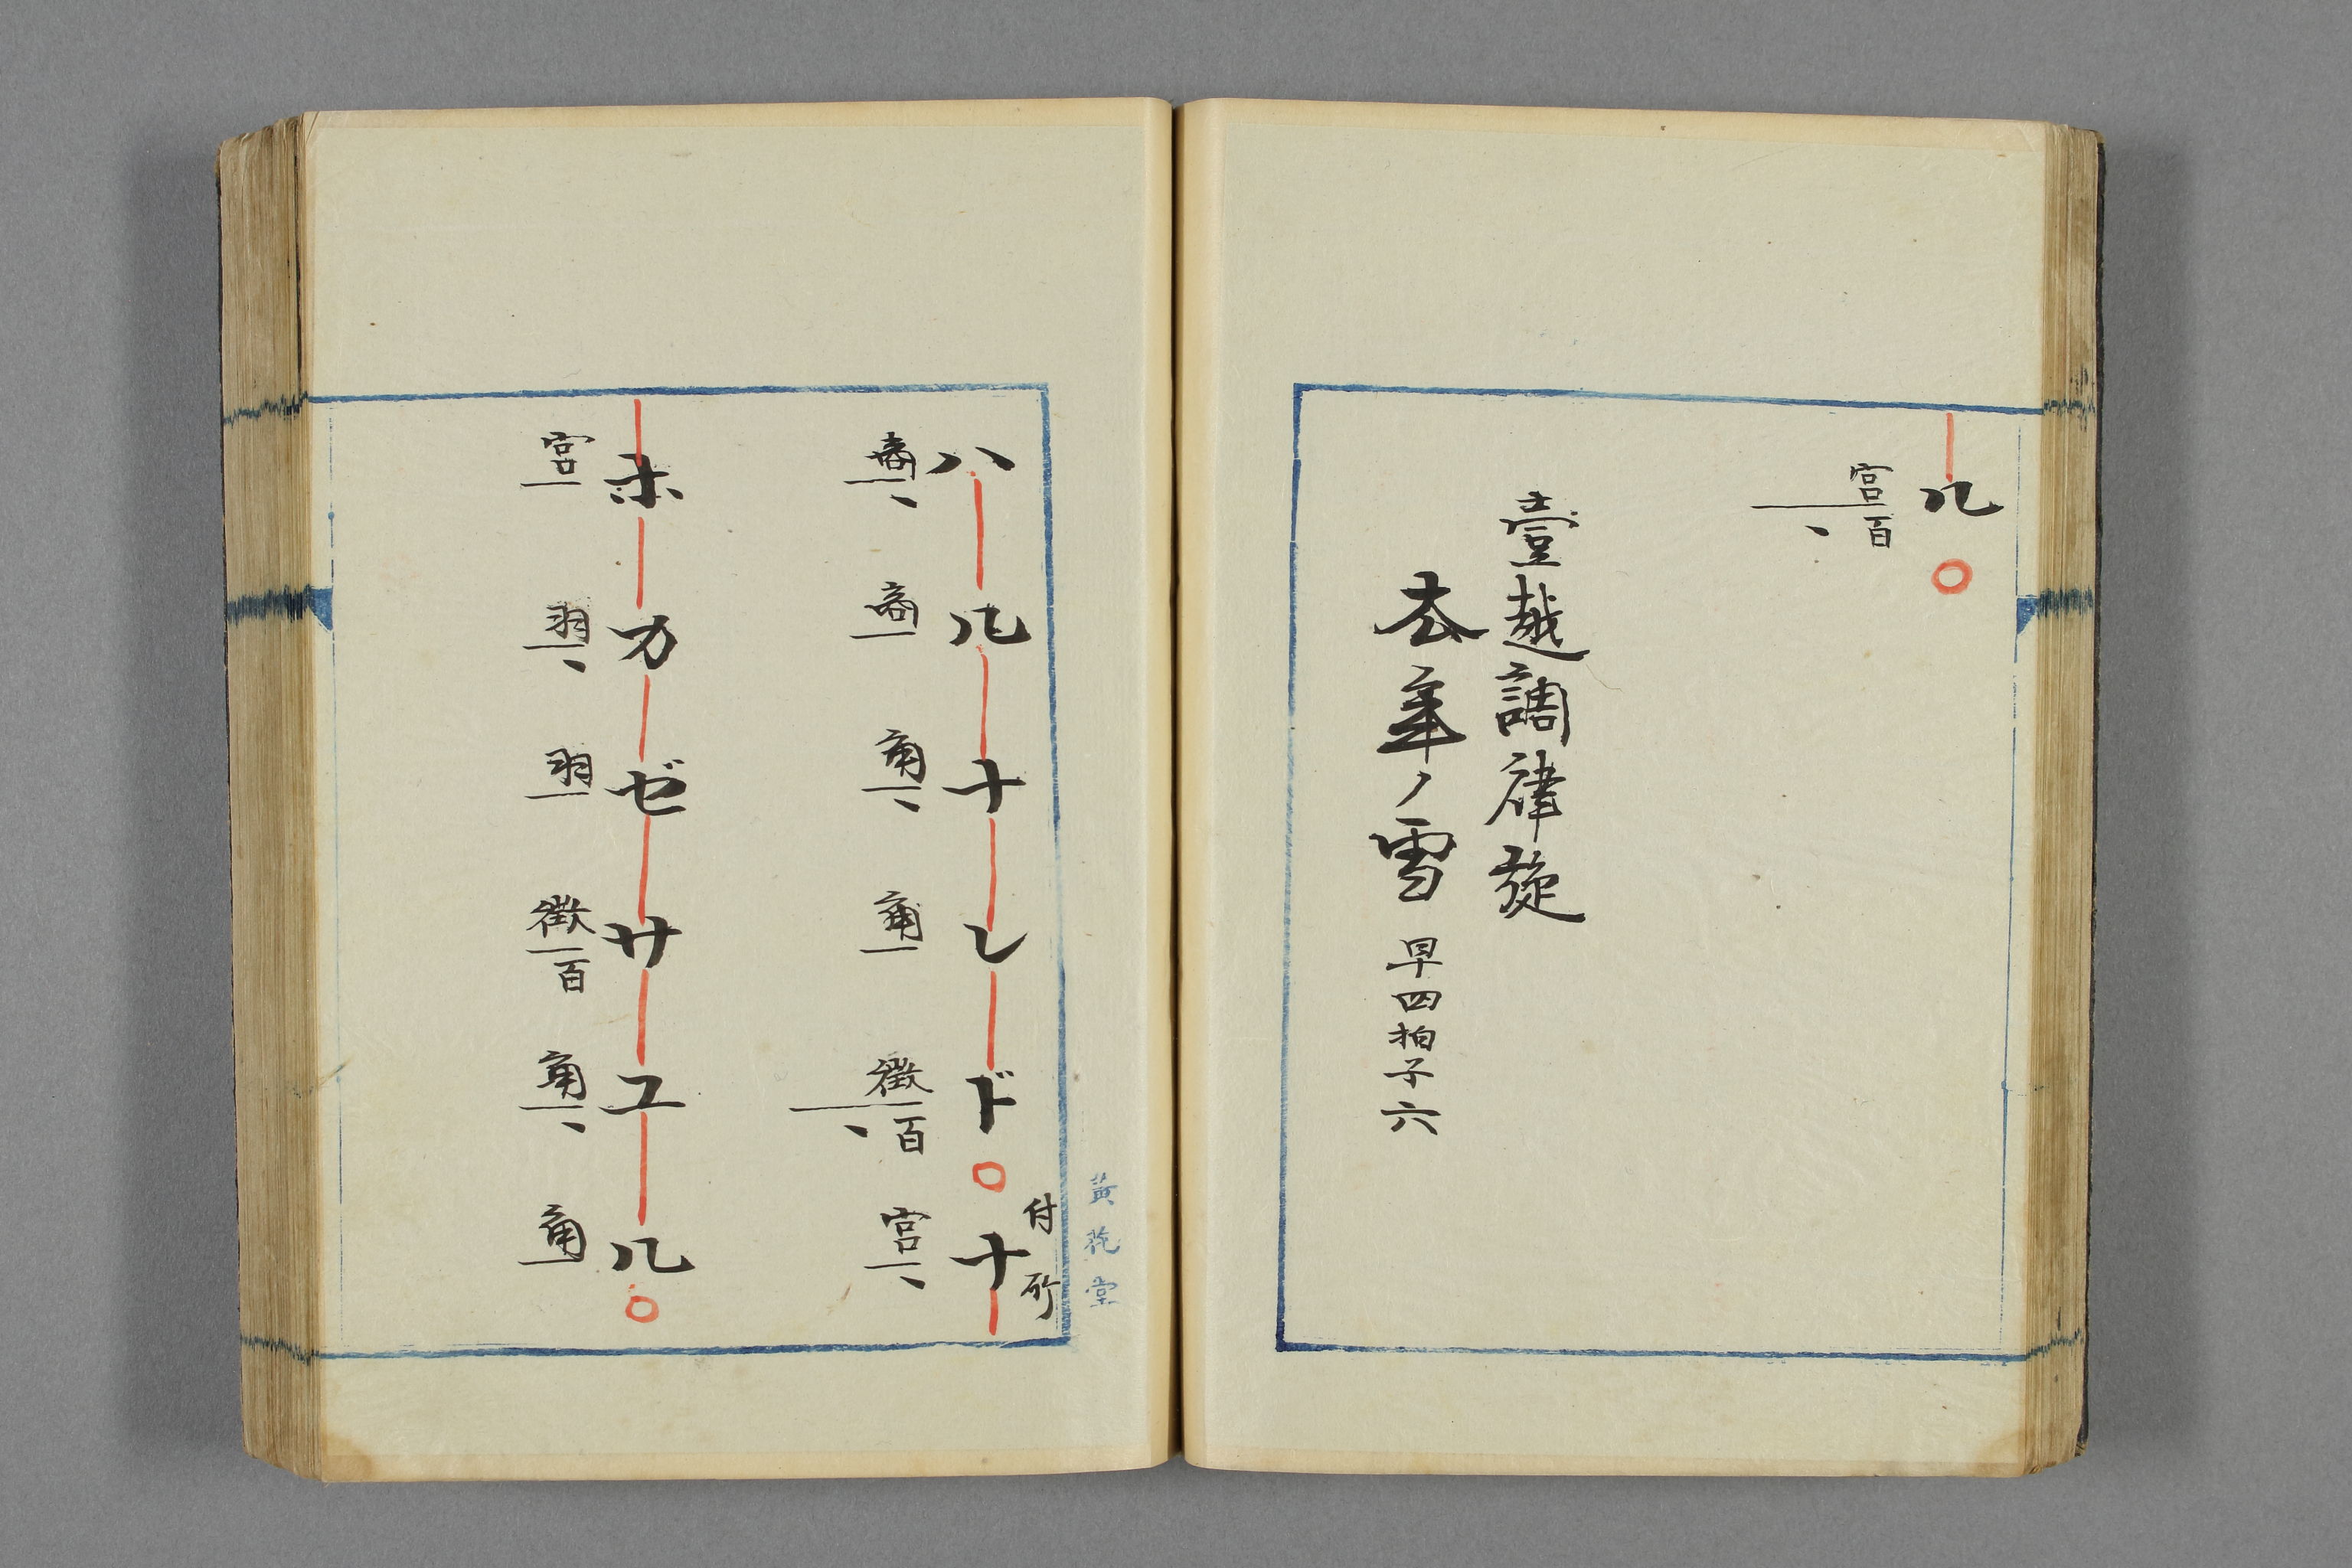 ル
宮百
、
壹越調律旋
去年ノ雪 早四拍子六
ハルナレド ナ
付所
商、商 角、角 徴百、宮、
ホカゼサユル
宮 羽、羽 徴百 角、角
黄花堂